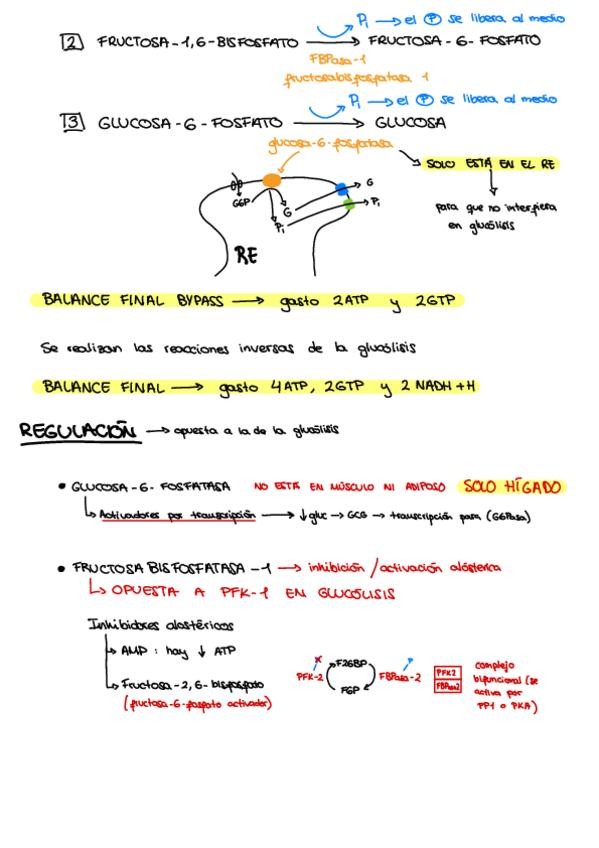 Pi → el Ⓟ se libera al medio
2 FRUCTOSA-1,6-BISFOSFATO → FRUCTOSA-6-FOSFATO
FBPasa-1
fructosabisfosfatasa 1
Pi → el Ⓟ se libera al medio
3 GLUCOSA-6-FOSFATO → GLUCOSA
glucosa-6-fosfatasa
SOLO ESTÁ EN EL RE
G6P
G
Pi
G
Pi
para que no interfiera
en glucólisis
RE
BALANCE FINAL BYPASS → gasto 2ATP y 2GTP
Se realizan las reacciones inversas de la glucólisis
BALANCE FINAL → gasto 4ATP, 2GTP y 2NADH+H
REGULACIÓN → opuesta a la de la glucólisis
• GLUCOSA-6-FOSFATASA NO ESTÁ EN MÚSCULO NI ADIPOSO SOLO HÍGADO
↳ Activadores por transcripción → ↓gluc → GCG → transcripción para (G6Pasa)
• FRUCTOSA BISFOSFATASA-1 → inhibición/activación alostérica
↳ OPUESTA A PFK-1 EN GLUCÓLISIS
Inhibidores alostéricos
↳ AMP: hay ↓ ATP
↳ Fructosa-2,6-bisfosfato
(fructosa-6-fosfato activador)
F26BP
PFK-2
FBPasa-2
F6P
PFK2
FBPasa2
complejo
bifuncional (se
activa por
PP1 o PKA)